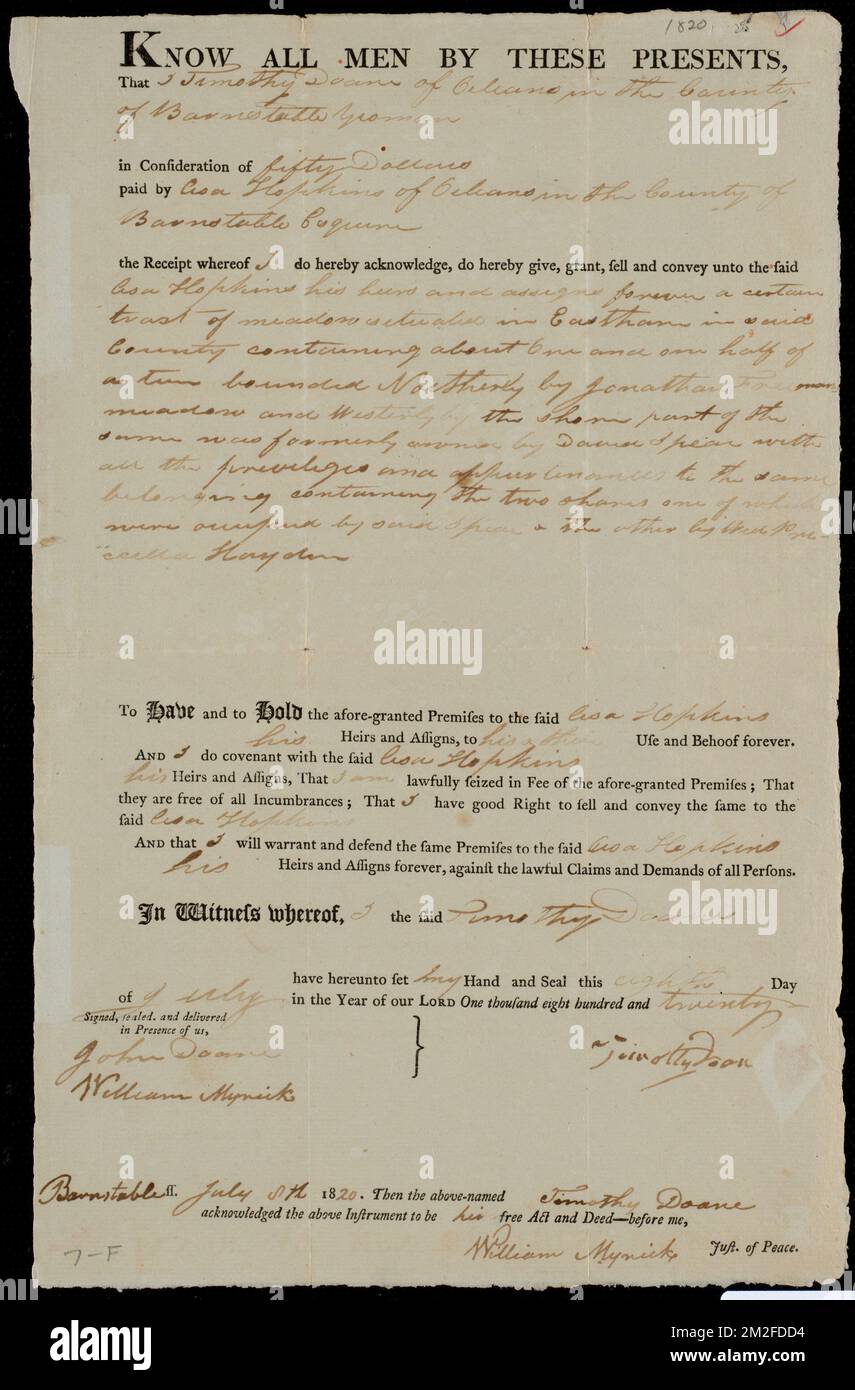 1820
KNOW ALL MEN BY THESE PRESENTS,
That I Timothy Doane of Orleans in the County
of Barnstable Yeoman
in Conſideration of fifty Dollars
paid by Asa Hopkins of Orleans in the County of
Barnstable Esquire
the Receipt whereof I do hereby acknowledge, do hereby give, grant, ſell and convey unto the ſaid
Asa Hopkins his heirs and assigns forever a certain
tract of meadow situated in Eastham in said
County containing about One and one half of
bounded Northerly by Jonathan Freemans
meadow and Westerly by the shore part of the
same was formerly owned by David Spear with
all the privileges and appurtenances to the same
belonging containing the two shares one of which
were occupied by said Spear & the other by Wed Pri-
cella Hayden
To Have and to Hold the afore-granted Premiſes to the ſaid Asa Hopkins
his Heirs and Aſſigns, to his & their Uſe and Behoof forever.
AND I do covenant with the ſaid Asa Hopkins
his Heirs and Aſſigns, That I am lawfully ſeized in Fee of the afore-granted Premiſes; That
they are free of all Incumbrances; That I have good Right to ſell and convey the ſame to the
ſaid Asa Hopkins
AND that I will warrant and defend the ſame Premiſes to the ſaid Asa Hopkins
his Heirs and Aſſigns forever, againſt the lawful Claims and Demands of all Perſons.
In Witneſs whereof, I the ſaid Timothy Doane
have hereunto ſet my Hand and Seal this eighth Day
of July in the Year of our LORD One thouſand eight hundred and twenty
Signed, ſealed, and delivered
in Preſence of us,
John Doane
William Myrick
Timothy Doane
Barnstable ſſ. July 8th 1820. Then the above-named Timothy Doane
acknowledged the above Inſtrument to be his free Act and Deed—before me,
William Myrick Juſt. of Peace.
7-F
a alamy
alamy
Image ID: 2M2FDD4
www.alamy.com